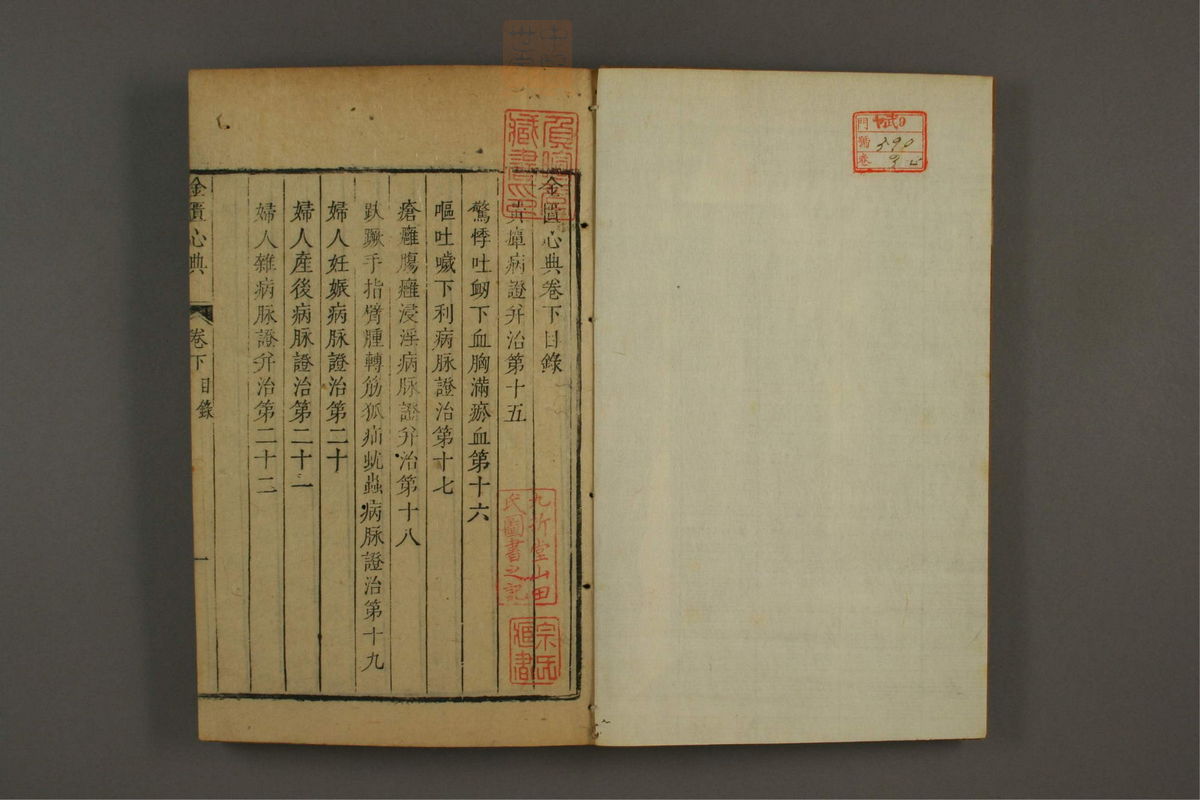 金匱心典卷下目錄
黃癉病證并治第十五
驚悸吐衂下血胸滿瘀血第十六
嘔吐噦下利病脉證治第十七
瘡癰腸癰浸淫病脉證并治第十八
趺蹶手指臂腫轉筋狐疝蚘蟲病脉證治第十九
婦人妊娠病脉證治第二十
婦人產後病脉證治第二十一
婦人雜病脉證并治第二十二
金匱心典
卷下目錄
一
藏書印
九折堂山田
氏圖書之記
宗氏
藏書
門
號
卷